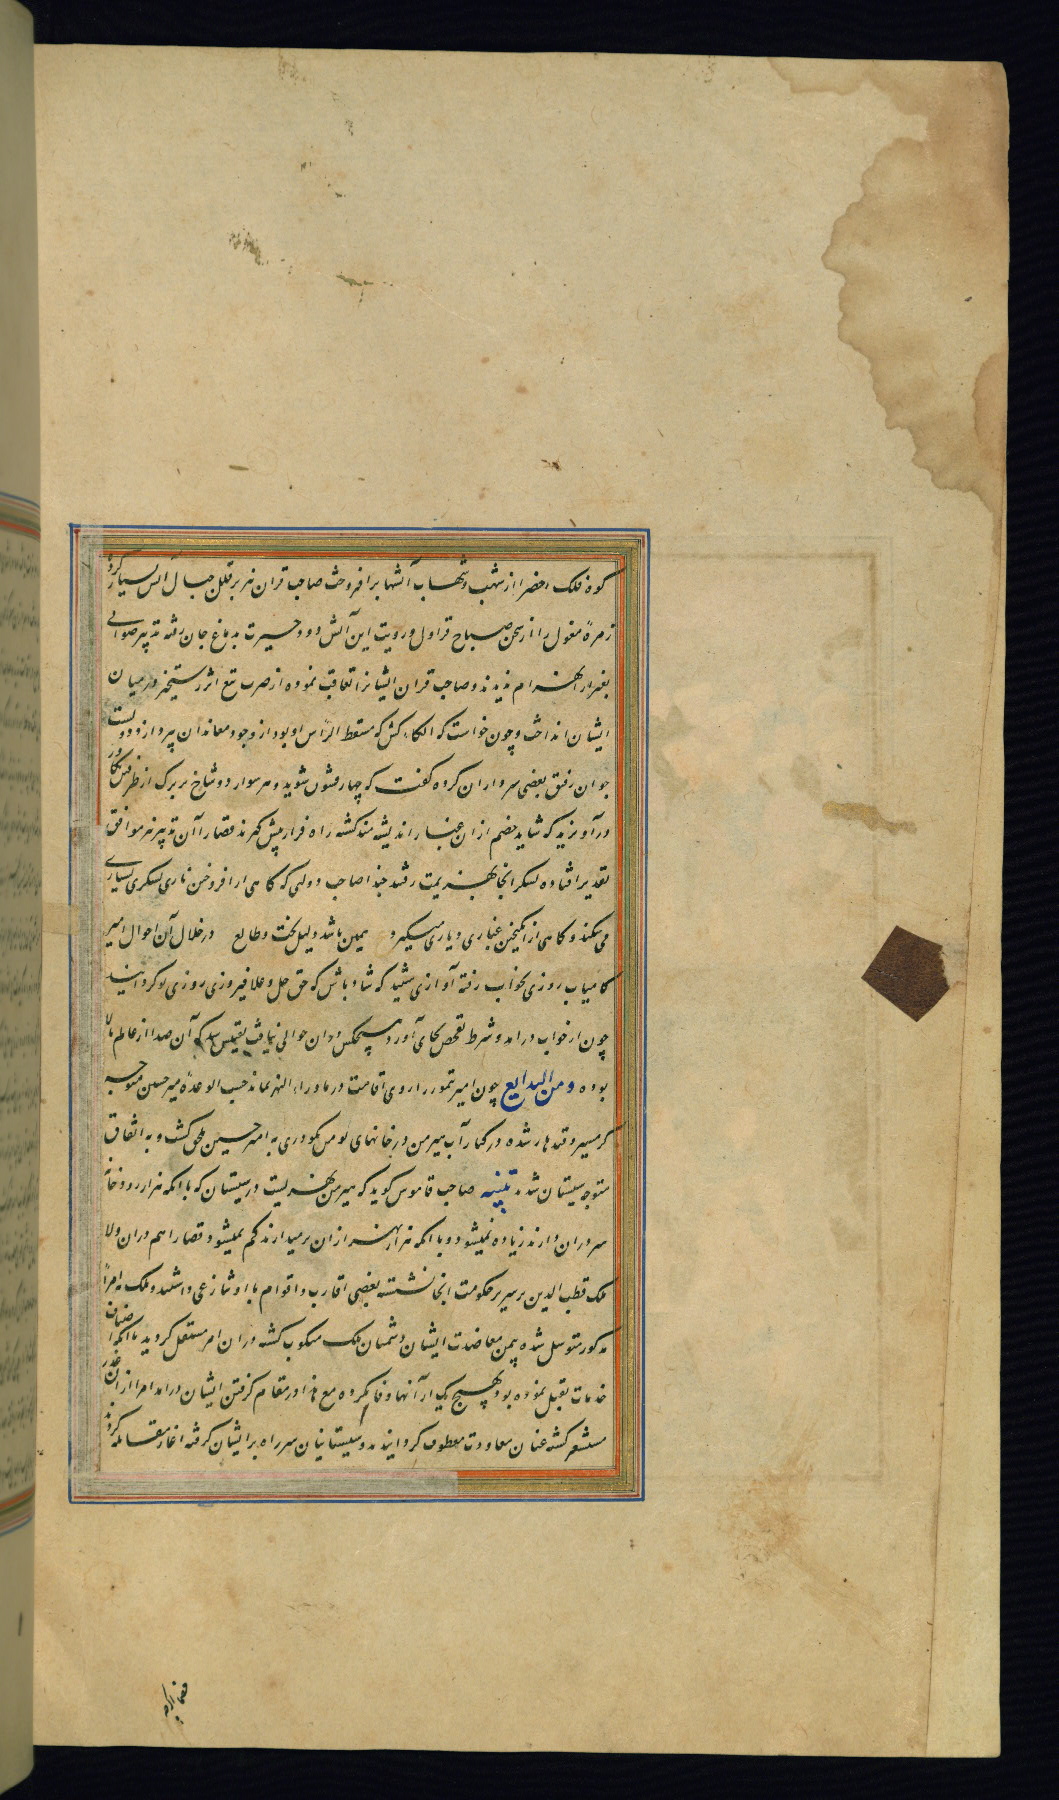 کوه فلک اخضر از شهب و شهاب آتشها برافروخت صاحب قران نیز بر قلل جبال آتش بسیار کرد و
زمرهٔ مغول را از سحن صباح قراول و رویت این آتش دود حیرت بدماغ جان رفته تدبیر صوابی
بغیر از انهزام ندیدند و صاحب قران ایشانرا تعاقب نموده از ضرب تیغ اثر رستخیز در میان
ایشان انداخت و چون خواست که الکاء کش که مسقط الرأس او بود از وجود معاندان بپردازد دویست
جوان رفیق بعضی سرداران کرده کفت که چهار قشون شوید و هر سوار دو شاخ پر برک از طرفین کا در
درآویزید که شاید خصم ازان غبار اندیشه مند کشته راه فرار پیش کیرند قضا را آن تدبیر نیز موافق
تقدیر افتاده لشکر انجا بهزیمت رفتند حبذا صاحب دولتی که کاهی از افروختن ناری لشکری بسیاری
می شکند و کاهی از انکیختن غباری دیاری میکیرد همین باشد دلیل بخت و طالع در خلال آن احوال امیر
کامیاب روزی بخواب رفته آوازی شنید که شاد باش که حق جل و علا فیروزی روزی تو کردانید
چون از خواب درامد و شرط تفحص بجای آورد هیچکس دران حوالی نیافت یقینش شد که آن صدا از عالم بالا
بوده ومن البدایع چون امیر تیمور را روی اقامت در ماوراء النهر نماند حسب الوعدهٔ میر حسین متوجه
کرمسیر و قندهار شده در کنار آب هیرمن در خانهای تومن نکودری به امیر حسین ملحق کشت و به اتفاق
متوجه سیستان شدند تنبیه صاحب قاموس کوید که هیرمن نهریست در سیستان که با انکه هزار رودخانه
سر دران دارند زیاده نمیشود و با انکه هزار نهر ازان برمیدارند کم نمیشود قضا را هم دران ولا
ملک قطب الدین بر سریر حکومت انجا نشسته بعضی اقارب و اقوام با او تنازعی داشتند و ملک به امراً
مذکور متوسل شده بیمن معاضدت ایشان دشمنان ملک منکوب کشته دران امر مستقل کردید با انکه اصناف
خدمات تقبل نموده بود بهیچ یک از آنها وفا نکرده مع هذا در مقام کرفتن ایشان درامد امرا ازان غدر
مستشعر کشته عنان معاودت معطوف کردانیدند و سیستانیان سر راه بر ایشان کرفته اغاز مقابله کردند